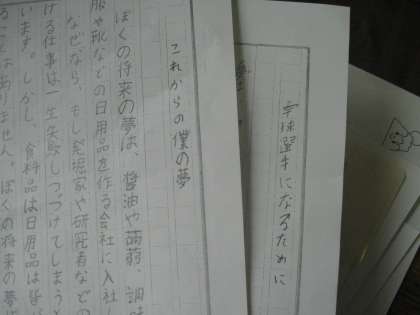 これからの僕の夢
ぼくの将来の夢は、醤油や蒟蒻、調味
服や靴などの日用品を作る会社に入社し
なぜなら、もし発掘家や研究者などの
ける仕事は一生失敗しつづけてしまうと
います。しかし、食料品は日用品は皆が
ることはありません。ぼくの将来の夢が
卓球選手になるために